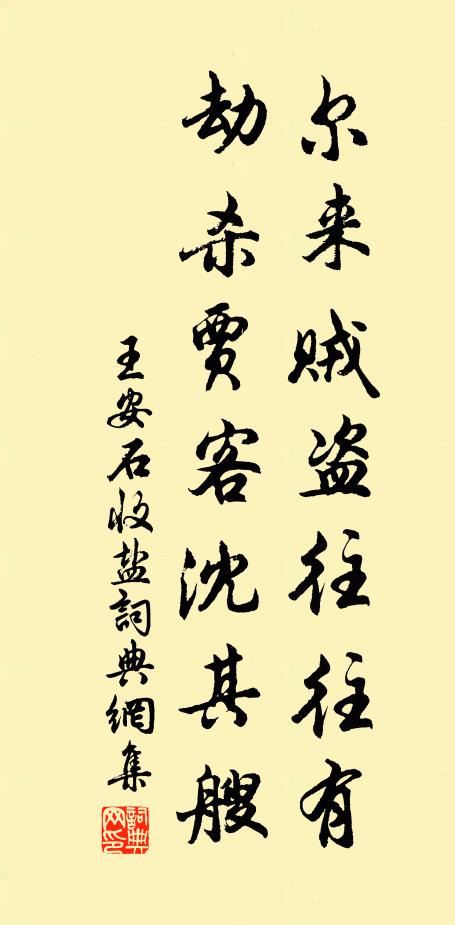 尔来贼盗往往有
劫杀贾客沈其艘
王安石收盐詞典網集
詞典网印